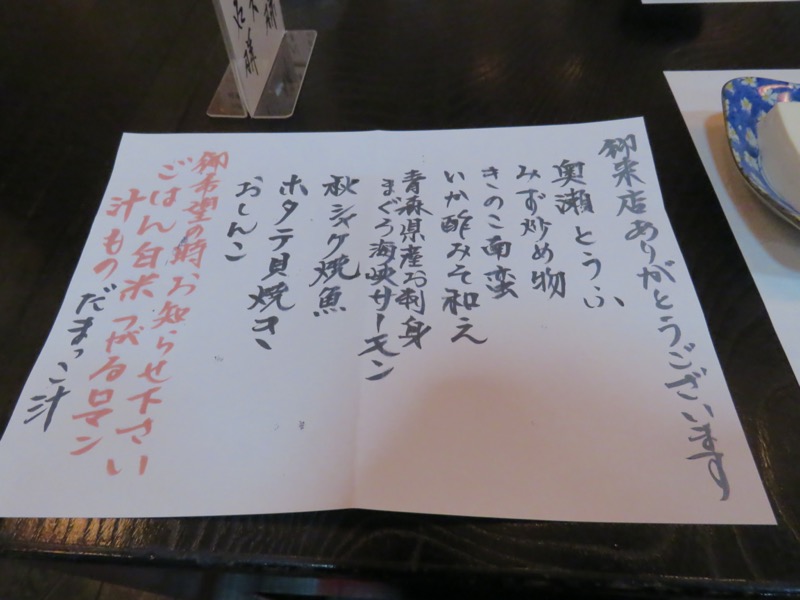 御来店ありがとうございます
奥瀬とうふ
みず炒め物
きのこ南蛮
いか酢みそ和え
青森県産お刺身
まぐろ海峡サーモン
秋シャケ焼魚
ホタテ貝焼き
おしんこ
御希望の時お知らせ下さい
ごはん白米つがるロマン
汁ものだまっこ汁